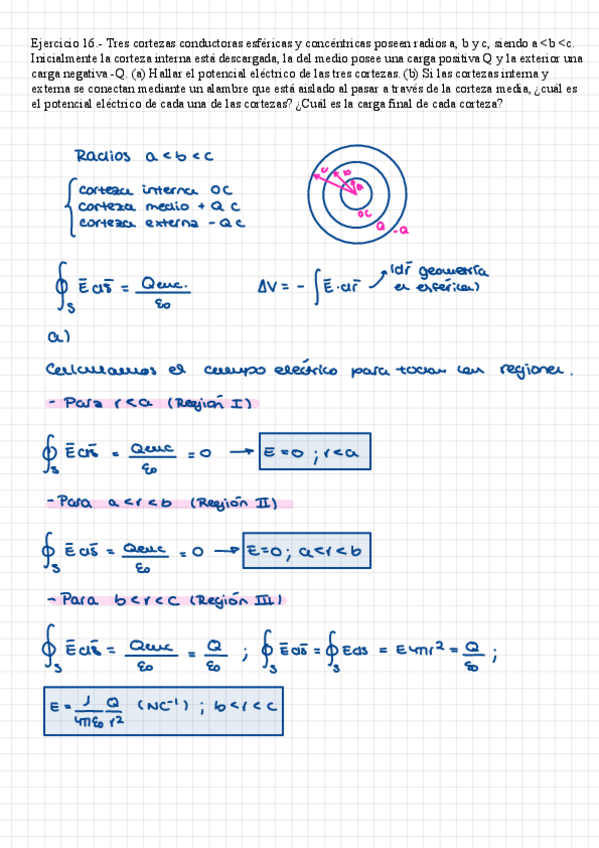 Ejercicio 16.- Tres cortezas conductoras esféricas y concéntricas poseen radios a, b y c, siendo a<b<c.
Inicialmente la corteza interna está descargada, la del medio posee una carga positiva Q y la exterior una
carga negativa -Q. (a) Hallar el potencial eléctrico de las tres cortezas. (b) Si las cortezas interna y
externa se conectan mediante un alambre que está aislado al pasar a través de la corteza media, ¿cuál es
el potencial eléctrico de cada una de las cortezas? ¿Cuál es la carga final de cada corteza?
Radios a < b < c
corteza interna 0C
corteza medio + Q C
corteza externa - Q C
c b a
0C Q -Q
∮s E̅ds̅ = Qenc./ε0
ΔV = - ∫E̅·dr̅ (dr̅ geometría
es esférica)
a)
Calculamos el campo eléctrico para todas las regiones.
- Para r<a (Región I)
∮s E̅ds̅ = Qenc/ε0 = 0 → E=0 ; r<a
- Para a<r<b (Región II)
∮s E̅ds̅ = Qenc/ε0 = 0 → E=0 ; a<r<b
- Para b<r<c (Región III)
∮s E̅ds̅ = Qenc/ε0 = Q/ε0 ; ∮s E̅ds̅ = ∮s Eds = E4πr² = Q/ε0 ;
E = 1/4πε0 Q/r² (NC⁻¹) ; b<r<c